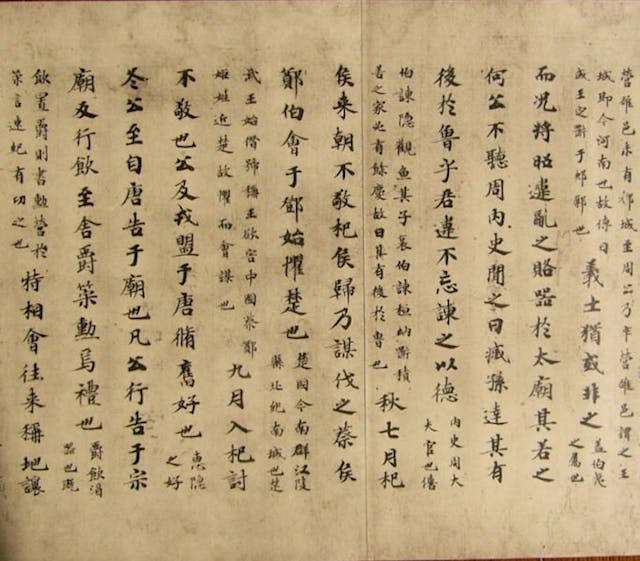 營雒邑未有都城至周公乃卒營雒邑謂之王
城即今河南也故傳曰
成王定鼎于郟鄏也
義士猶或非之
蓋伯夷
之屬也
而况將昭違亂之賂器於太廟其若之
何公不聽周內史聞之曰臧孫達其有
後於魯乎君違不忘諫之以德
內史周大
夫官也僖
伯諫隱觀魚其子哀伯諫桓納鼎積
善之家必有餘慶故曰其有後於魯也
秋七月杞
侯来朝不敬杞侯歸乃謀伐之蔡侯
鄭伯會于鄧始懼楚也
楚國今南郡江陵
縣北紀南城也楚
武王始僭號稱王欲害中國蔡鄭
姬姓近楚故懼而會謀也
九月入杞討
不敬也公及戎盟于唐脩舊好也
惠隱
之好
冬公至自唐告于廟也凡公行告于宗
廟反行飲至舍爵策勳焉禮也
爵飲酒
器也既
飲置爵則書勳勞於
策言速紀有功之也
特相會往来稱地讓